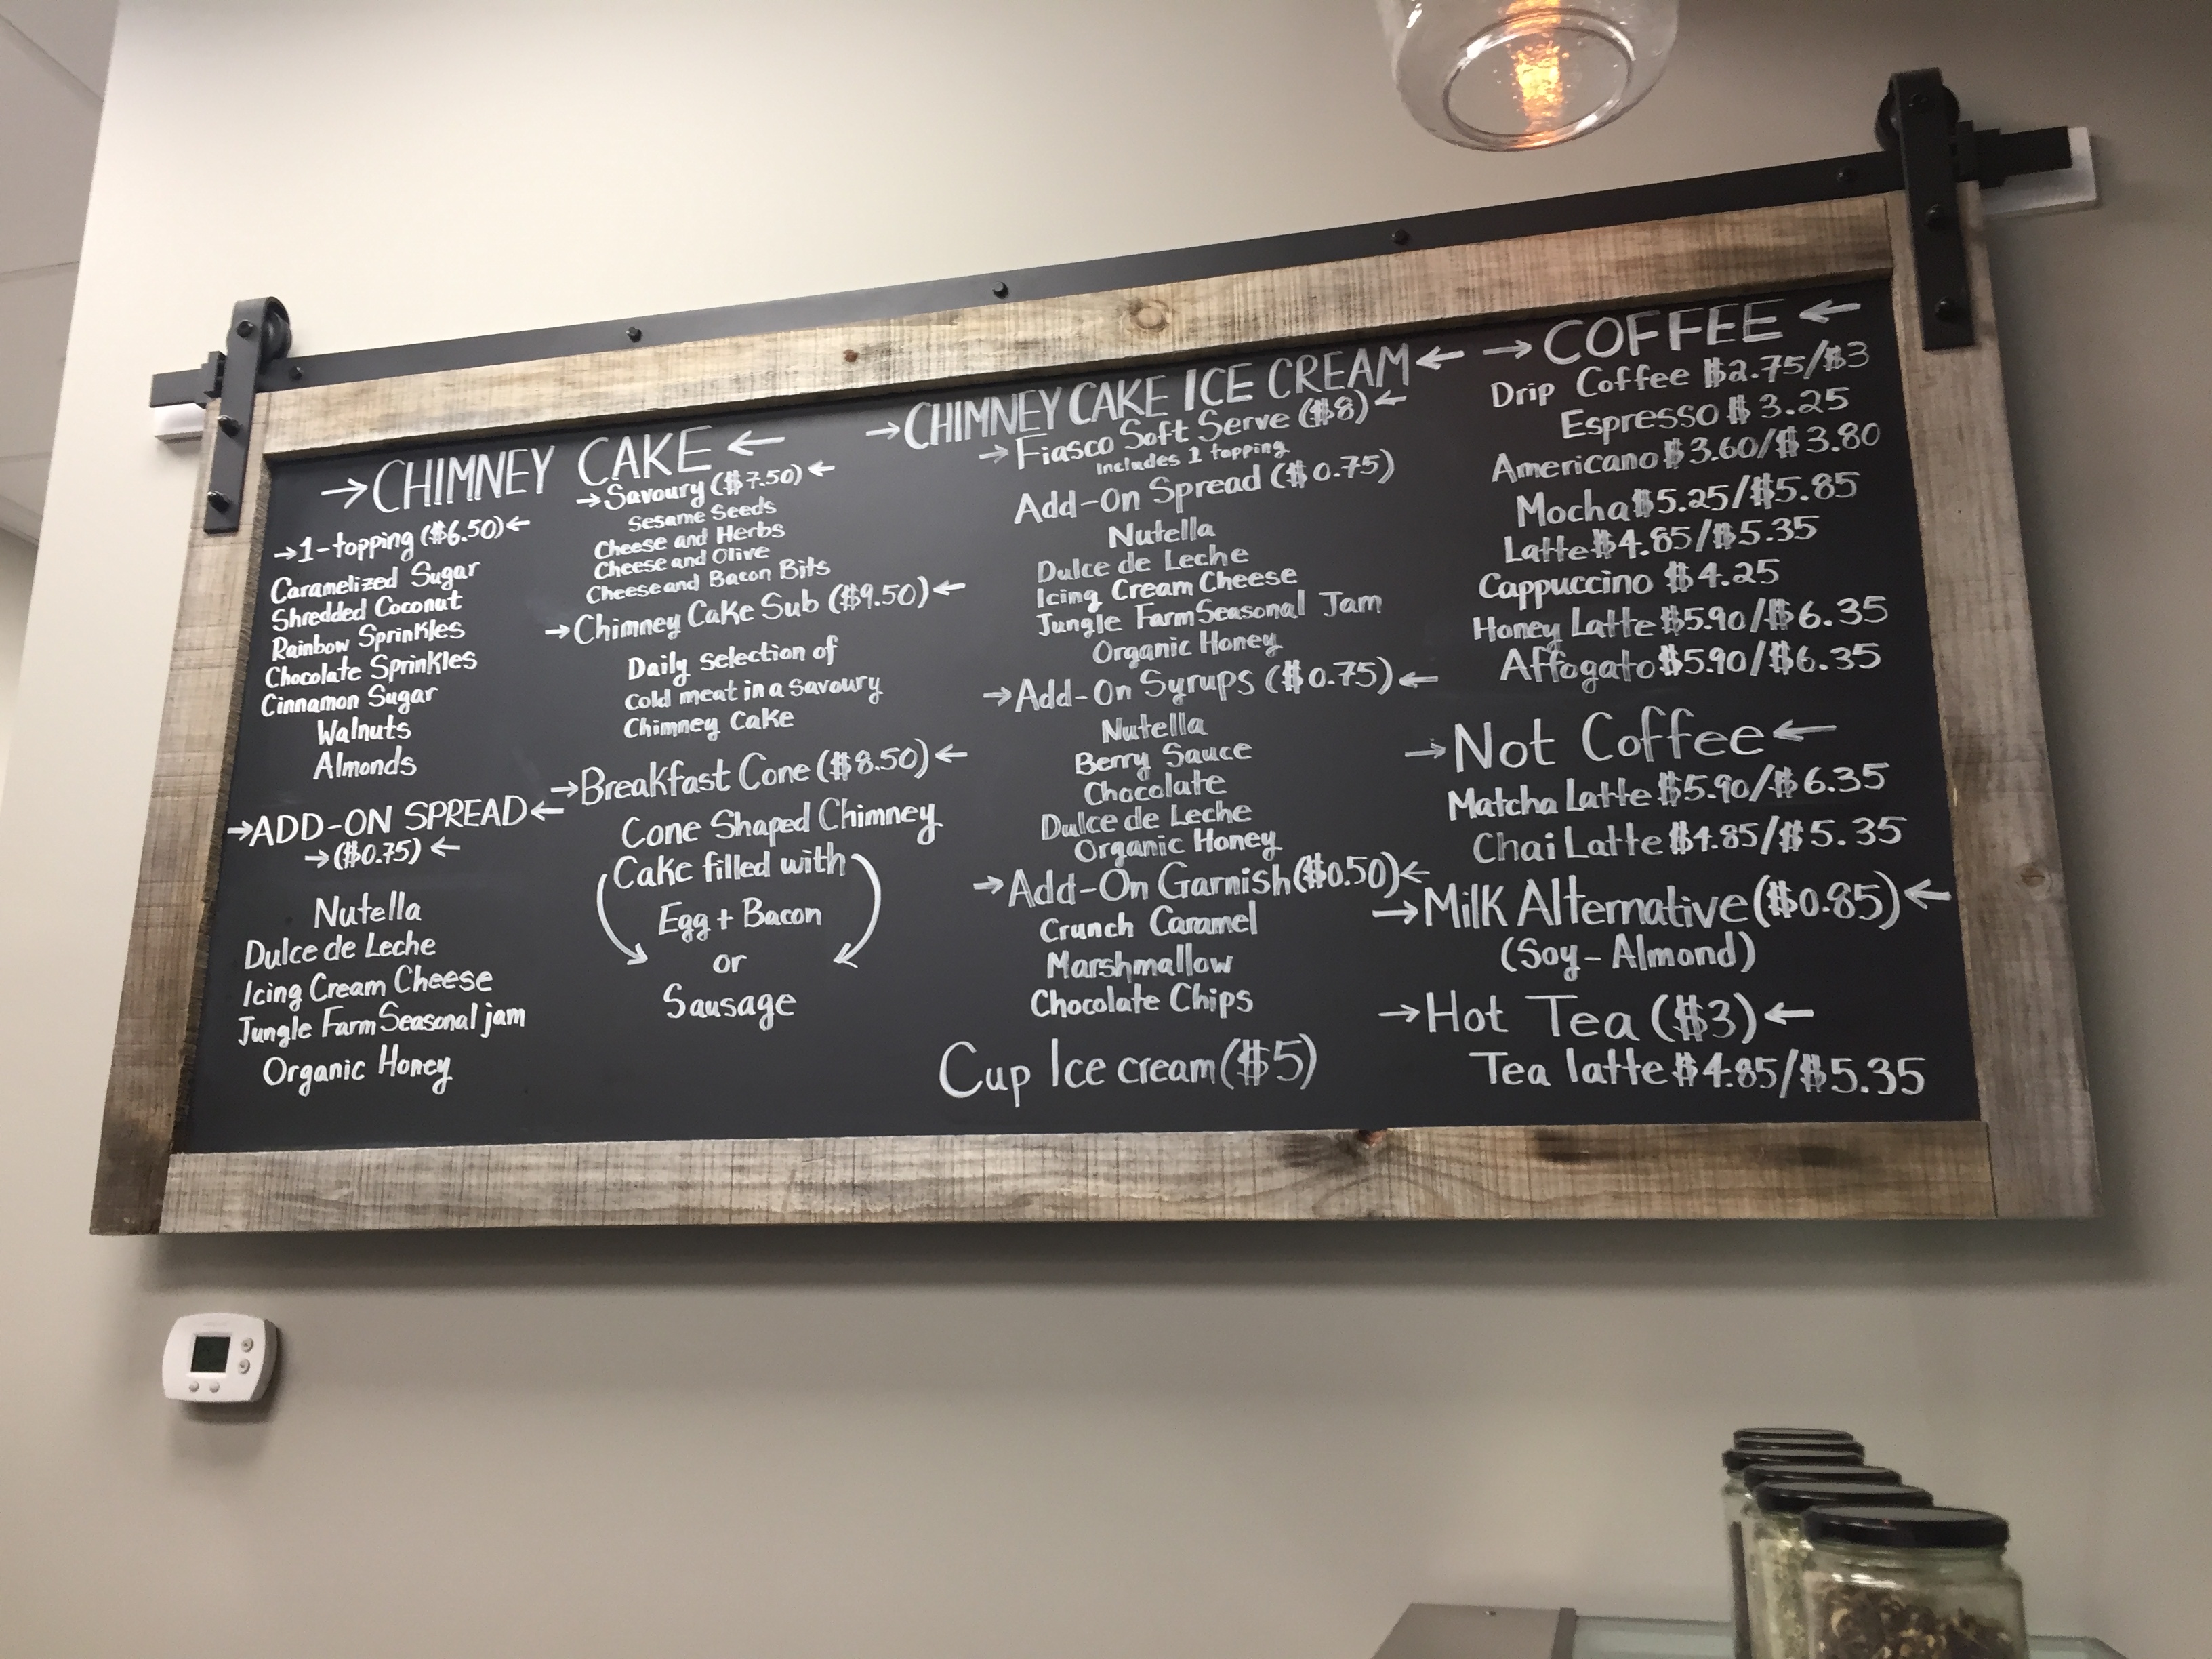 →CHIMNEY CAKE←
→1-topping ($6.50)←
Caramelized Sugar
Shredded Coconut
Rainbow Sprinkles
Chocolate Sprinkles
Cinnamon Sugar
Walnuts
Almonds
→ADD-ON SPREAD←
→($0.75)←
Nutella
Dulce de Leche
Icing Cream Cheese
Jungle Farm Seasonal jam
Organic Honey
→Savoury ($7.50)←
Sesame Seeds
Cheese and Herbs
Cheese and Olive
Cheese and Bacon Bits
→Chimney Cake Sub ($9.50)←
Daily selection of
cold meat in a savoury
Chimney Cake
→Breakfast Cone ($8.50)←
Cone Shaped Chimney
Cake filled with
Egg + Bacon
or
Sausage
→CHIMNEY CAKE ICE CREAM←
→Fiasco Soft Serve ($8)←
Includes 1 topping
Add-On Spread ($0.75)
Nutella
Dulce de Leche
Icing Cream Cheese
Jungle Farm Seasonal Jam
Organic Honey
→Add-On Syrups ($0.75)←
Nutella
Berry Sauce
Chocolate
Dulce de Leche
Organic Honey
→Add-On Garnish ($0.50)←
Crunch Caramel
Marshmallow
Chocolate Chips
Cup Ice cream ($5)
→COFFEE←
Drip Coffee $2.75/$3
Espresso $3.25
Americano $3.60/$3.80
Mocha $5.25/$5.85
Latte $4.85/$5.35
Cappuccino $4.25
Honey Latte $5.90/$6.35
Affogato $5.90/$6.35
→Not Coffee←
Matcha Latte $5.90/$6.35
Chai Latte $4.85/$5.35
→Milk Alternative ($0.85)←
(Soy-Almond)
→Hot Tea ($3)←
Tea latte $4.85/$5.35